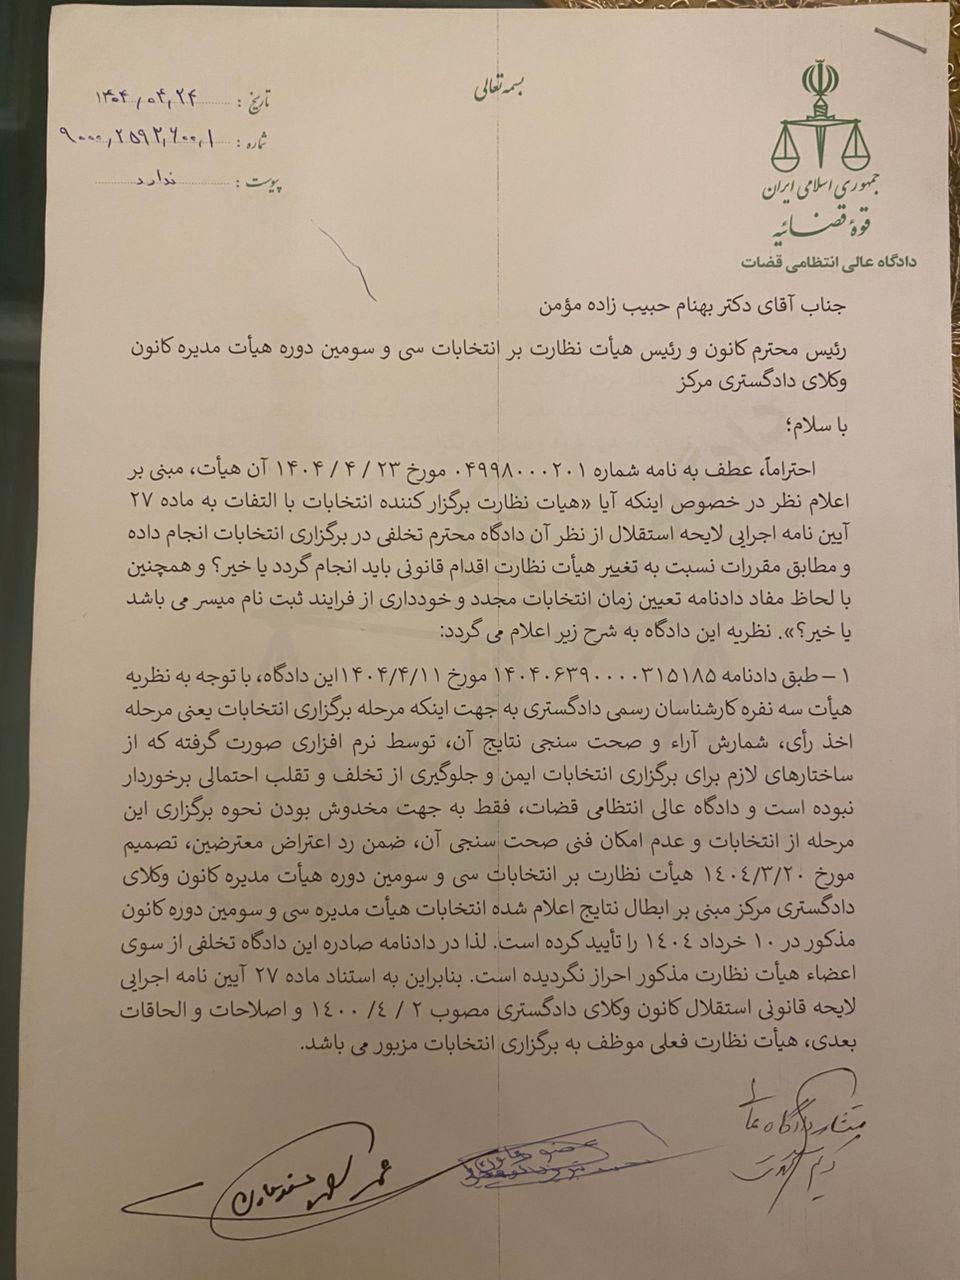 بسمه تعالی
تاریخ : ۱۴۰۴,۰۴,۲۴
شماره : ۹۰۰۰,۲۵۹۲,۶۰۰,۱
پیوست : ندارد
جمهوری اسلامی ایران
قوهٔ قضائیه
دادگاه عالی انتظامی قضات
جناب آقای دکتر بهنام حبیب زاده مؤمن
رئیس محترم کانون و رئیس هیأت نظارت بر انتخابات سی و سومین دوره هیأت مدیره کانون
وکلای دادگستری مرکز
با سلام؛
احتراماً، عطف به نامه شماره ۰۴۹۹۸۰۰۰۲۰۱ مورخ ۲۳ / ۴ / ۱۴۰۴ آن هیأت، مبنی بر
اعلام نظر در خصوص اینکه آیا «هیات نظارت برگزار کننده انتخابات با التفات به ماده ۲۷
آیین نامه اجرایی لایحه استقلال از نظر آن دادگاه محترم تخلفی در برگزاری انتخابات انجام داده
و مطابق مقررات نسبت به تغییر هیأت نظارت اقدام قانونی باید انجام گردد یا خیر؟ و همچنین
با لحاظ مفاد دادنامه تعیین زمان انتخابات مجدد و خودداری از فرایند ثبت نام میسر می باشد
یا خیر؟». نظریه این دادگاه به شرح زیر اعلام می گردد:
۱ – طبق دادنامه ۱۴۰۴۰۶۳۹۰۰۰۰۳۱۵۱۸۵ مورخ ۱۴۰۴/۴/۱۱این دادگاه، با توجه به نظریه
هیأت سه نفره کارشناسان رسمی دادگستری به جهت اینکه مرحله برگزاری انتخابات یعنی مرحله
اخذ رأی، شمارش آراء و صحت سنجی نتایج آن، توسط نرم افزاری صورت گرفته که از
ساختارهای لازم برای برگزاری انتخابات ایمن و جلوگیری از تخلف و تقلب احتمالی برخوردار
نبوده است و دادگاه عالی انتظامی قضات، فقط به جهت مخدوش بودن نحوه برگزاری این
مرحله از انتخابات و عدم امکان فنی صحت سنجی آن، ضمن رد اعتراض معترضین، تصمیم
مورخ ۱۴۰۴/۳/۲۰ هیأت نظارت بر انتخابات سی و سومین دوره هیأت مدیره کانون وکلای
دادگستری مرکز مبنی بر ابطال نتایج اعلام شده انتخابات هیأت مدیره سی و سومین دوره کانون
مذکور در ۱۰ خرداد ۱۴۰۴ را تأیید کرده است. لذا در دادنامه صادره این دادگاه تخلفی از سوی
اعضاء هیأت نظارت مذکور احراز نگردیده است. بنابراین به استناد ماده ۲۷ آیین نامه اجرایی
لایحه قانونی استقلال کانون وکلای دادگستری مصوب ۲ / ۴/ ۱۴۰۰ و اصلاحات و الحاقات
بعدی، هیأت نظارت فعلی موظف به برگزاری انتخابات مزبور می باشد.